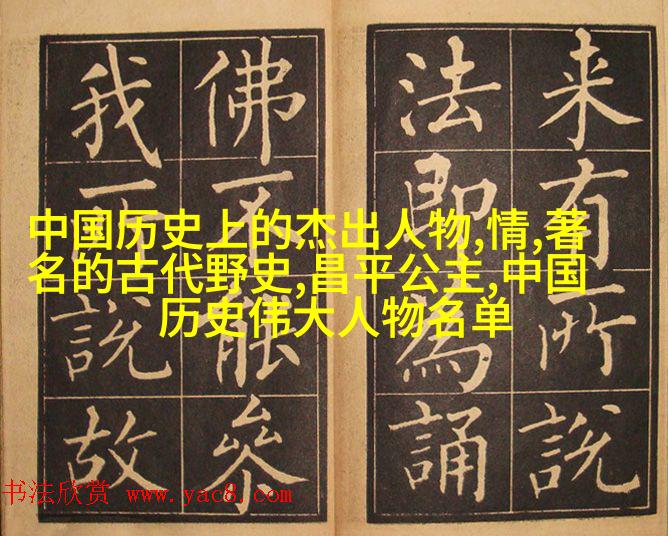 中国历史上的杰出人物,情,著
名的古代野史,昌平公主,中国
历史伟大人物名单
来有所說
法即為誦
佛不能叅
我所說故
书法欣赏 www.yac8.com